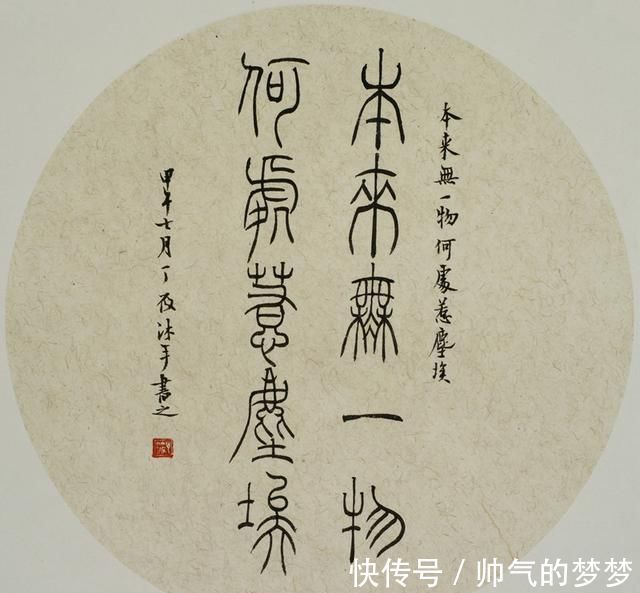 本来無一物何處惹塵埃
本來無一物
何處惹塵埃
甲午七月丁夜沐手書之
快传号/帅气的梦梦